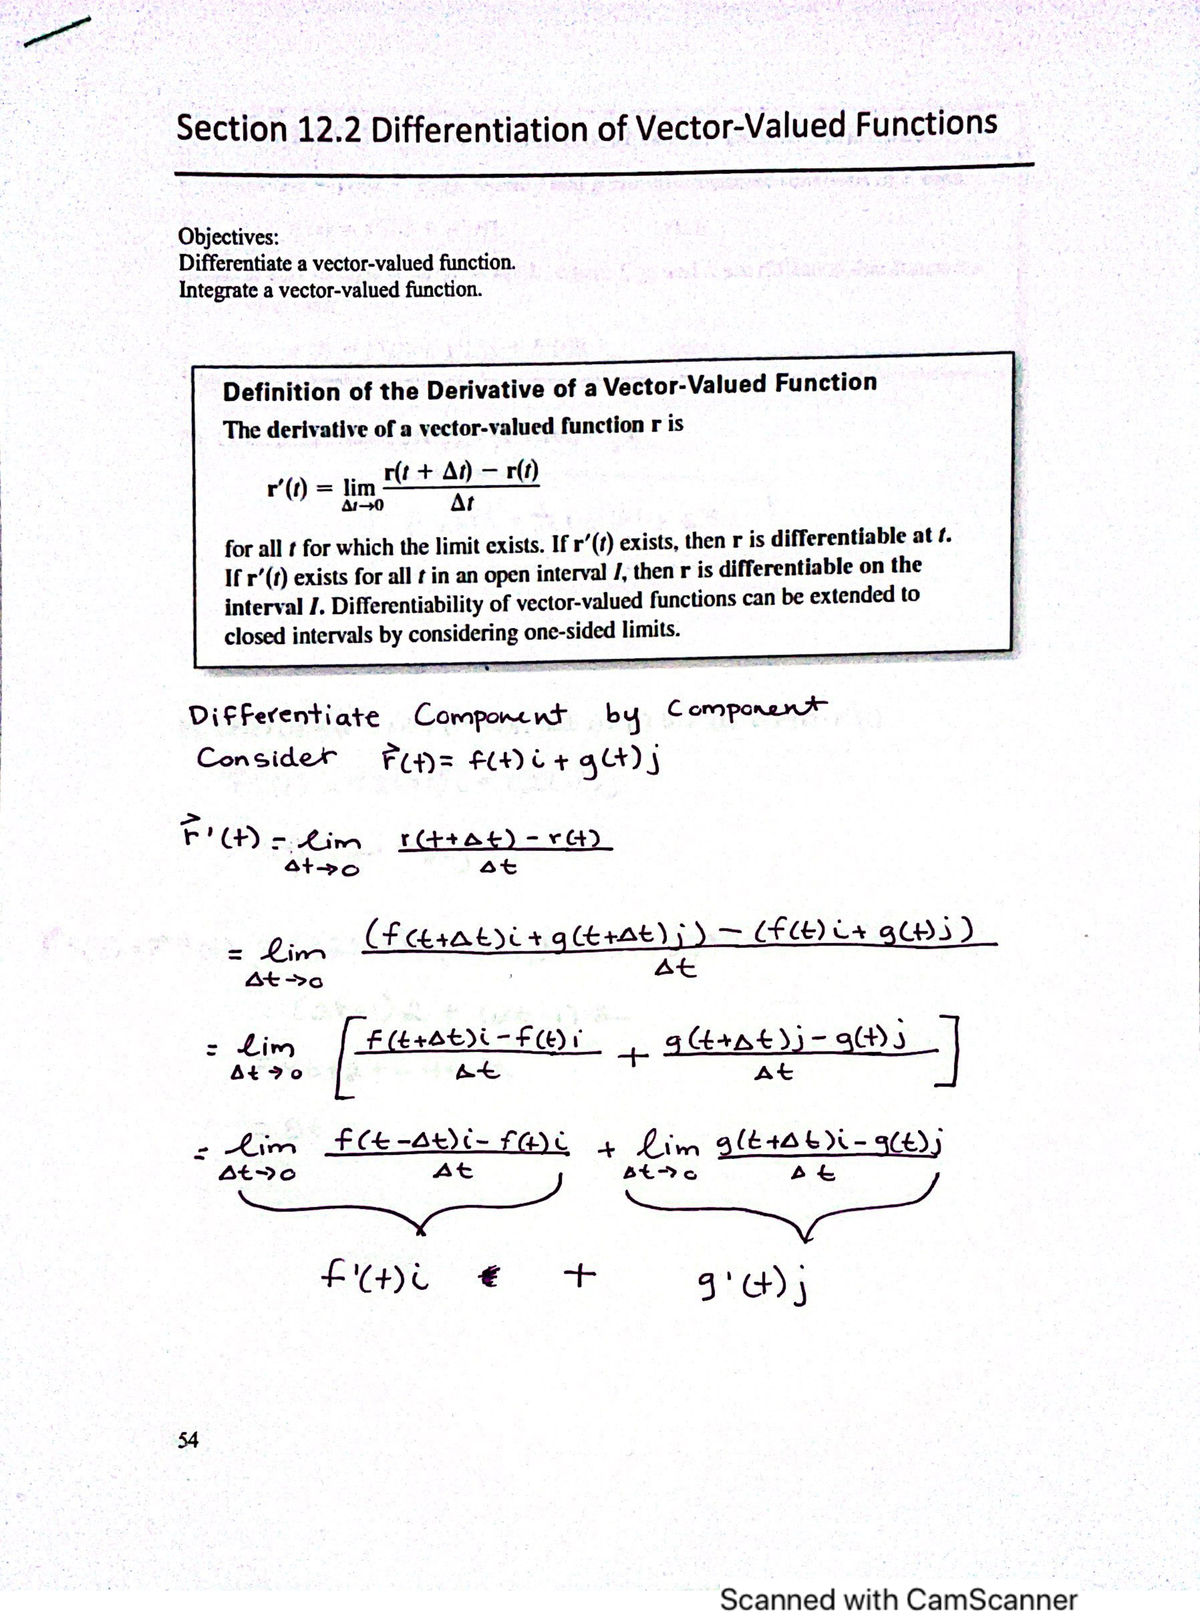 Section 12.2 Differentiation of Vector-Valued Functions
Objectives:
Differentiate a vector-valued function.
Integrate a vector-valued function.
Definition of the Derivative of a Vector-Valued Function
The derivative of a vector-valued function r is
r′(t) = lim Δt→0 (r(t + Δt) − r(t)) / Δt
for all t for which the limit exists. If r′(t) exists, then r is differentiable at t.
If r′(t) exists for all t in an open interval I, then r is differentiable on the
interval I. Differentiability of vector-valued functions can be extended to
closed intervals by considering one-sided limits.
Differentiate Component by Component
Consider r⃗(t) = f(t)i + g(t)j
r⃗'(t) = lim Δt→0 (r(t+Δt) − r(t)) / Δt
= lim Δt→0 ((f(t+Δt)i + g(t+Δt)j) − (f(t)i + g(t)j)) / Δt
= lim Δt→0 [ (f(t+Δt)i − f(t)i) / Δt + (g(t+Δt)j − g(t)j) / Δt ]
= lim Δt→0 (f(t−Δt)i − f(t)i) / Δt + lim Δt→0 (g(t+Δt)i − g(t)j) / Δt
f'(t)i + g'(t)j
54
Scanned with CamScanner